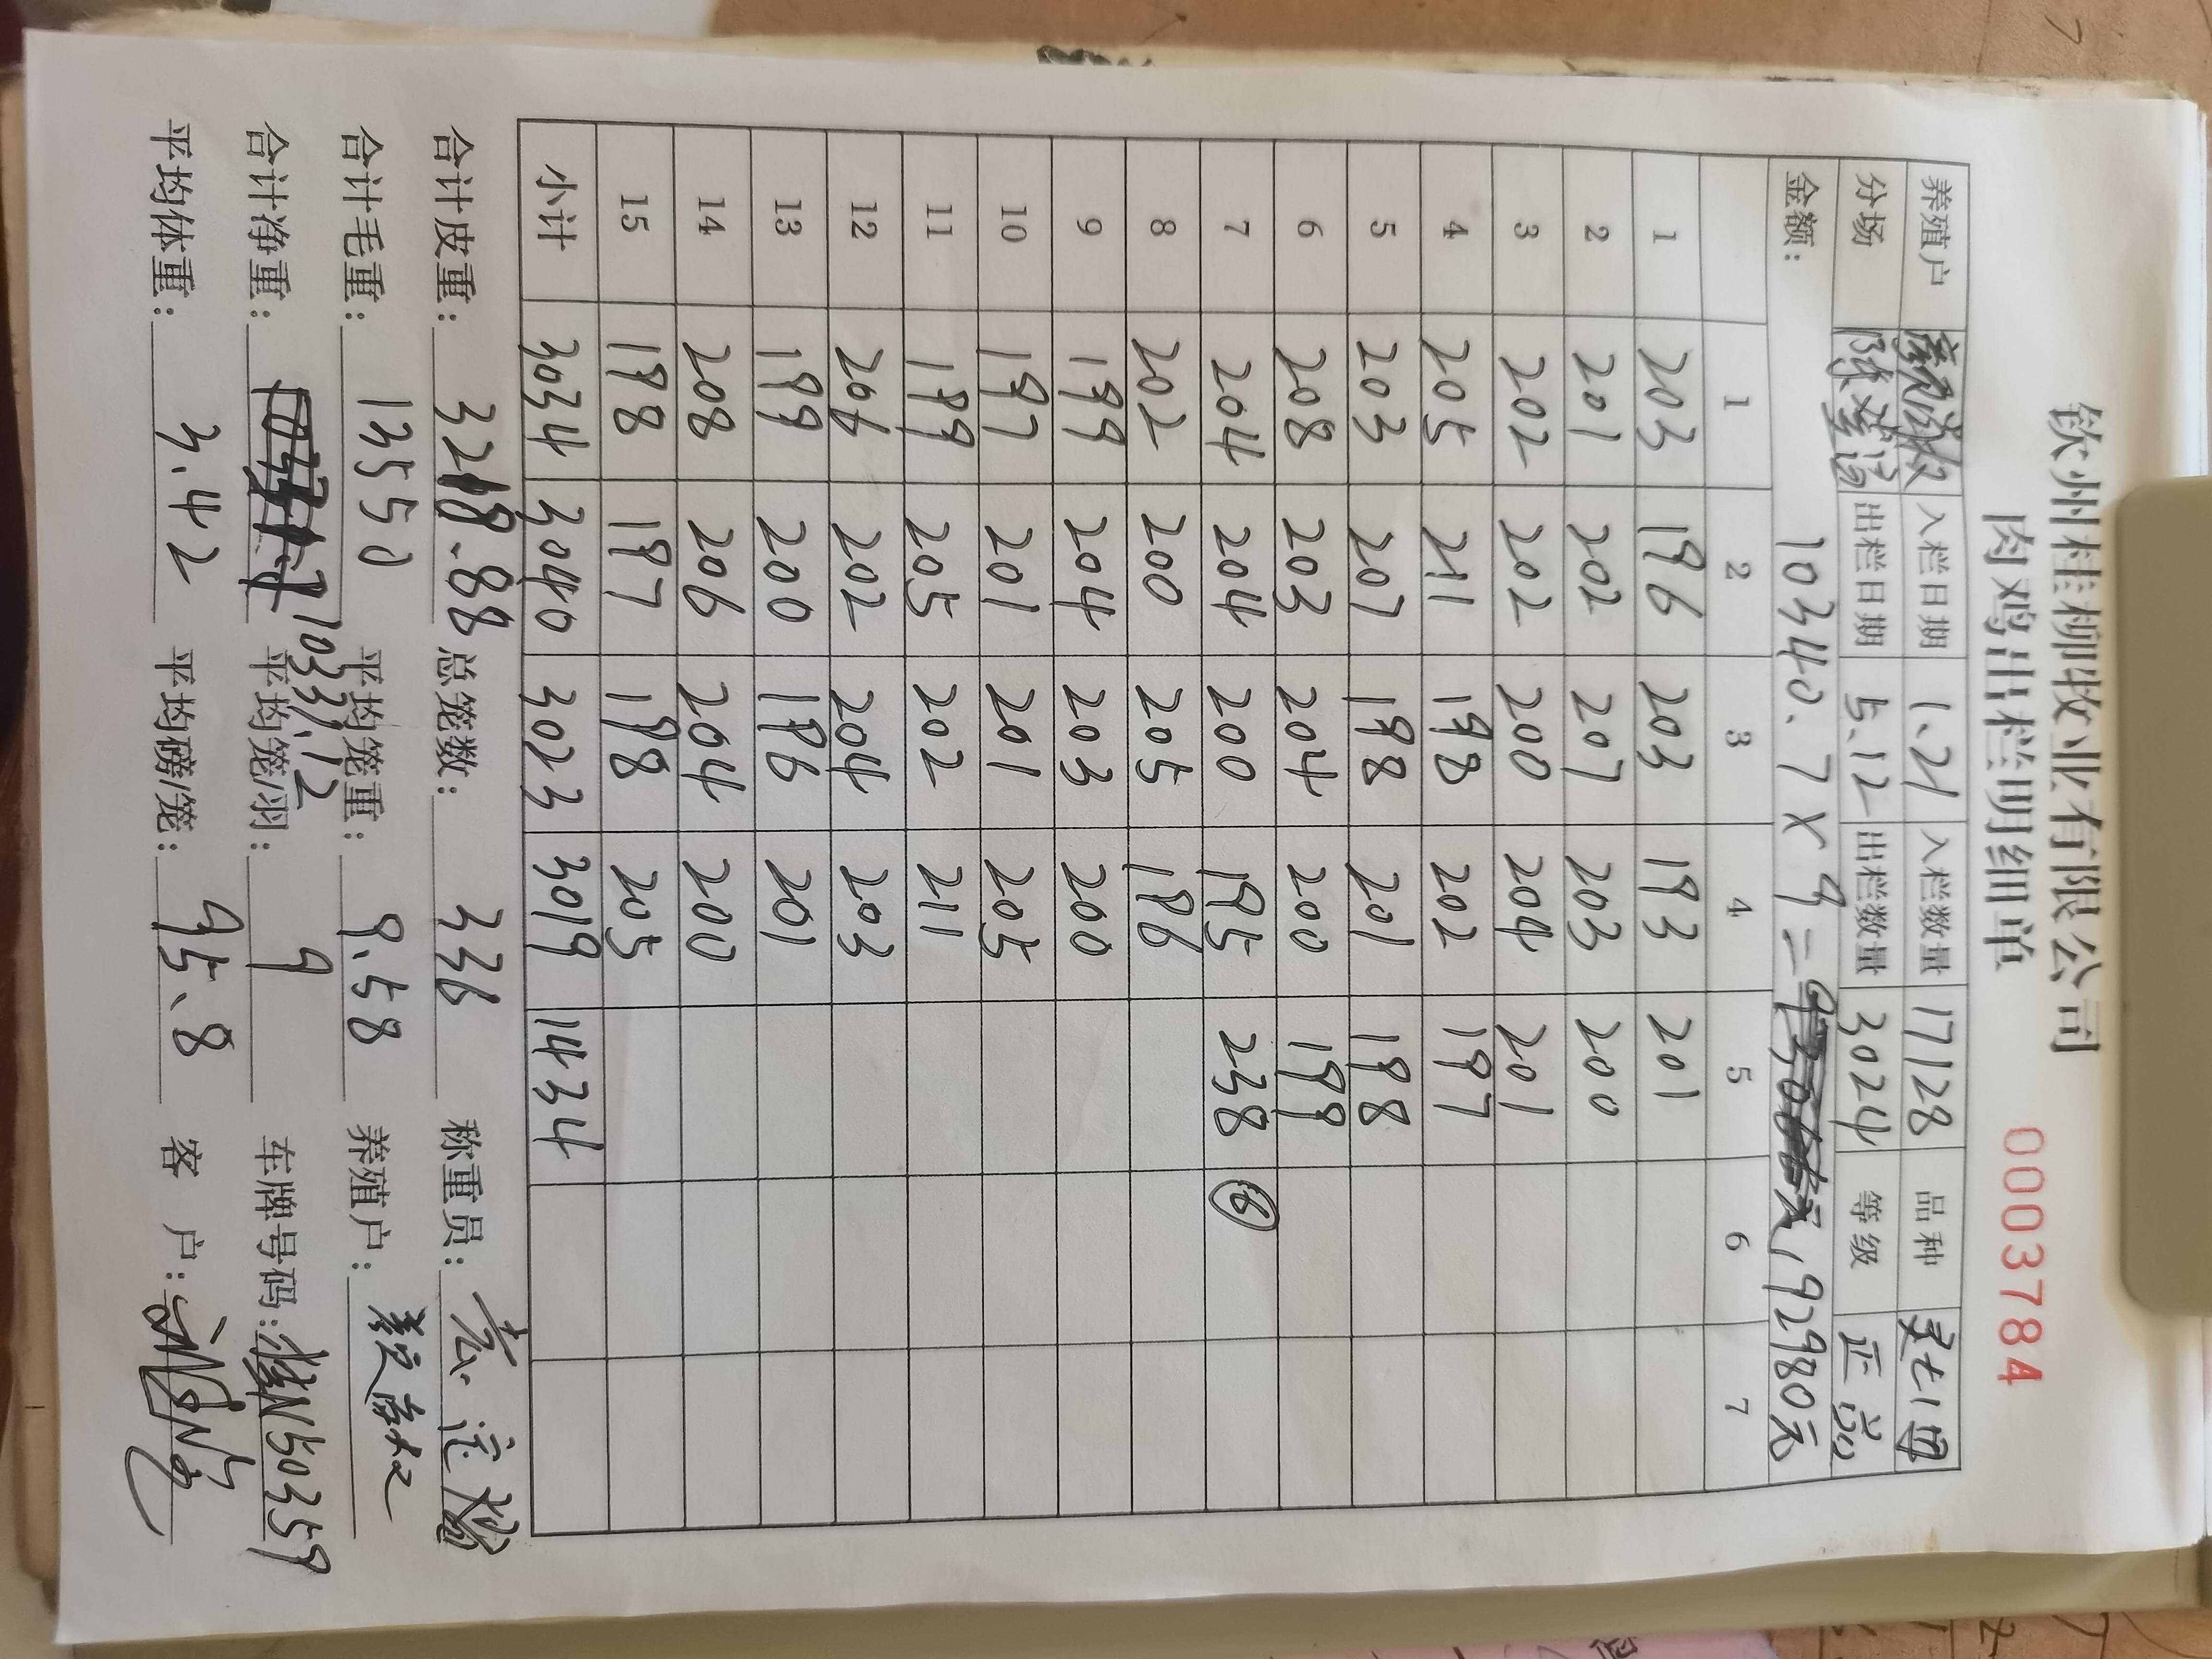 钦州桂柳牧业有限公司
肉鸡出栏明细单 0003784
养殖户 入栏日期 1.21 入栏数量 17128 品种
分场 出栏日期 5.12 出栏数量 3024 等级 正品
金额: 10340.7 X 9 = 92980元
1 2 3 4 5 6 7
1 203 196 203 193 201
2 201 202 207 203 200
3 202 202 200 204 201
4 205 211 198 202 197
5 203 207 198 201 198
6 208 203 204 200 199
7 204 204 200 195 238 ⑥
8 202 200 205 196
9 199 204 203 200
10 197 201 201 205
11 199 205 202 211
12 206 202 204 203
13 199 200 196 201
14 208 206 204 200
15 198 197 198 205
小计 3034 3040 3023 3019 1434
合计皮重: 3218.88 总笼数: 336 称重员:
合计毛重: 13550 平均笼重: 9.58 养殖户:
合计净重: 10331.12 平均笼/羽: 9 车牌号码: 桂N50359
平均体重: 3.42 平均磅/笼: 95.8 客 户: